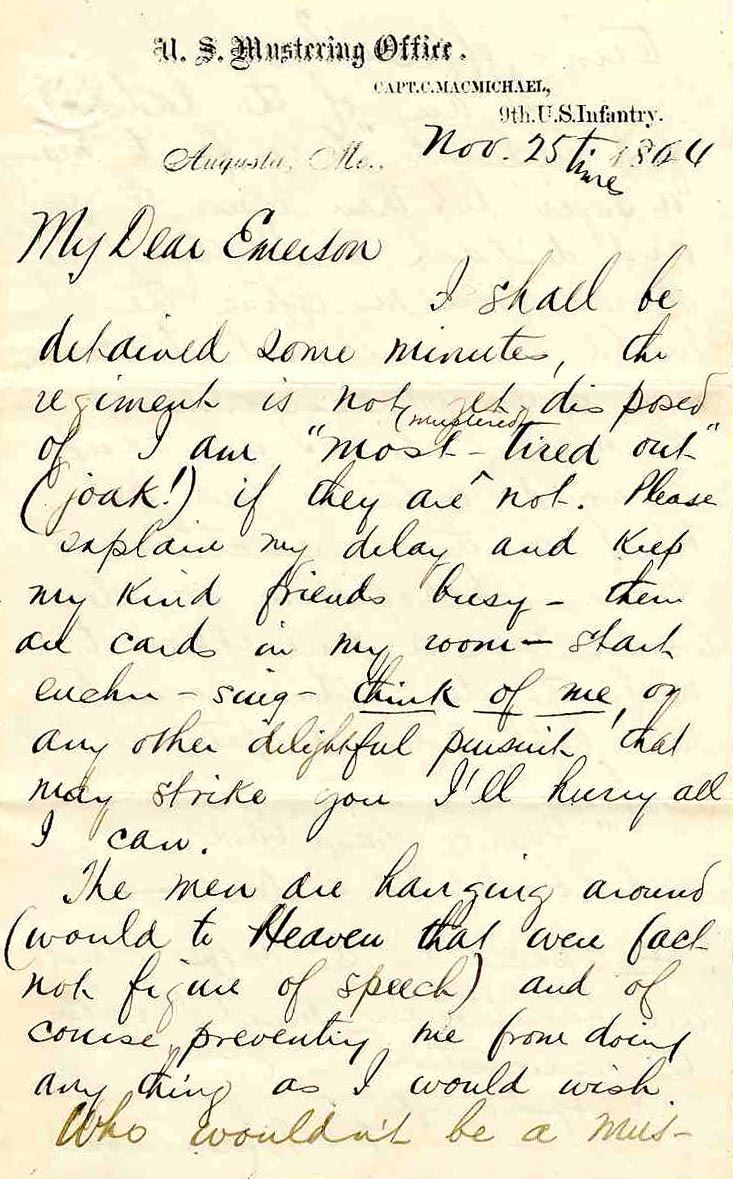 U. S. Mustering Office.
CAPT. C. MACMICHAEL,
9th. U.S. Infantry.
Augusta, Me., Nov. 25 times 1864
My Dear Emerson
I shall be
detained some minutes, the
regiment is not yet disposed
(mustered)
of I am "most-tired out"
(joak!) if they are ^ not. Please
explain my delay and keep
my kind friends busy - there
are cards in my room - start
euchre - sing - think of me, or
any other delightful pursuit that
may strike you I'll hurry all
I can.
The men are hanging around
(would to Heaven that were fact
not figure of speech) and of
course, preventing me from doing
any thing as I would wish.
Who wouldn't be a Mus-